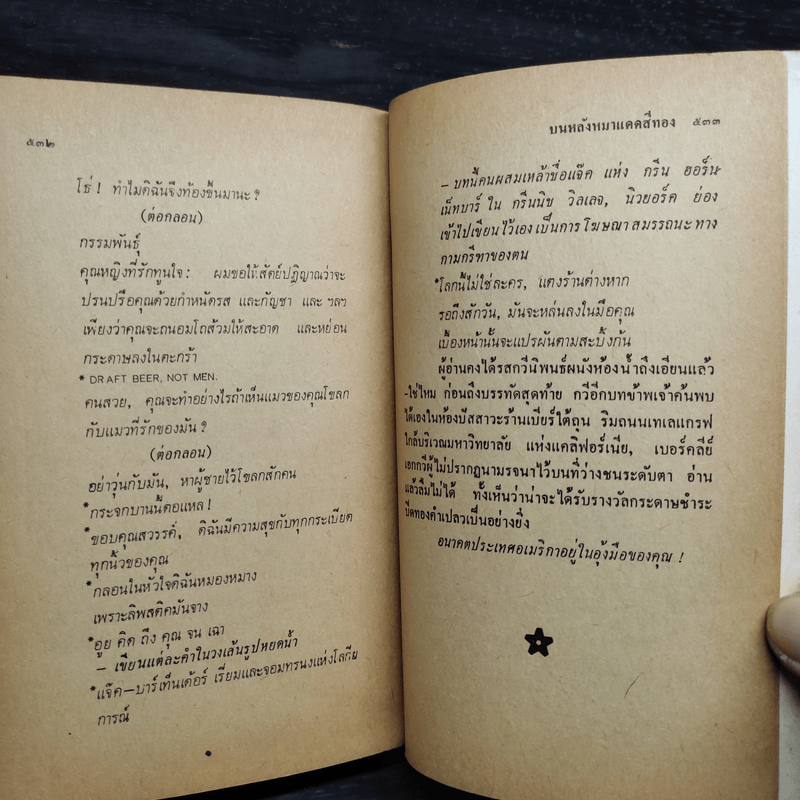 ๕๓๒
โธ่ ! ทำไมดิฉันจึงท้องขึ้นมานะ ?
(ต่อกลอน)
กรรมพันธุ์
คุณหญิงที่รักทูนใจ : ผมขอให้สัตย์ปฏิญาณว่าจะ
ปรนปรือคุณด้วยกำหนัดรส และกัญชา และ ฯลฯ
เพียงว่าคุณจะถนอมโถส้วมให้สะอาด และหย่อน
กระดาษลงในตะกร้า
* DRAFT BEER, NOT MEN.
คนสวย, คุณจะทำอย่างไรถ้าเห็นแมวของคุณโขลก
กับแมวที่รักของมัน ?
(ต่อกลอน)
อย่าวุ่นกับมัน, หาผู้ชายไว้โขลกสักคน
*กระจกบานนี้ตอแหล !
*ขอบคุณสวรรค์, ดิฉันมีความสุขกับทุกกระเบียด
ทุกนิ้วของคุณ
*กลอนในหัวใจดิฉันหมองหมาง
เพราะลิพสติคมันจาง
*อูย คิด ถึง คุณ จน เฉา
– เขียนแต่ละคำในวงเล้นรูปหยดน้ำ
*แจ๊ค—บาร์เท็นเด้อร์ เรี่ยมและจอมทรนงแห่งโลกีย
การณ์
บนหลังหมาแดดสีทอง ๕๓๓
– บทนี้คนผสมเหล้าชื่อแจ๊ค แห่ง กรีน ฮอร์น-
เน็ทบาร์ ใน กรีนนิช วิลเลจ, นิวยอร์ค ย่อง
เข้าไปเขียนไว้เอง เป็นการ โฆษณา สมรรถนะ ทาง
กามกรีฑาของตน
*โลกนี้ไม่ใช่ละคร, แตงร้านต่างหาก
รอถึงสักวัน, มันจะหล่นลงในมือคุณ
เบื้องหน้านั้นจะแปรผันตามสะบึ้งกัน
ผู้อ่านคงได้รสกวีนิพนธ์ผนังห้องน้ำถึงเอียนแล้ว
-ใช่ไหม ก่อนถึงบรรทัดสุดท้าย กวีอีกบทข้าพเจ้าค้นพบ
ได้เองในห้องปัสสาวะร้านเบียร์ใต้ถุน ริมถนนเทเลแกรฟ
ใกล้บริเวณมหาวิทยาลัย แห่งแคลิฟอร์เนีย, เบอร์คลีย์
เอกกวีผู้ไม่ปรากฏนามรจนาไว้บนที่ว่างชนระดับตา อ่าน
แล้วลืมไม่ได้ ทั้งเห็นว่าน่าจะได้รับรางวัลกระดาษชำระ
ปิดทองคำเปลวเป็นอย่างยิ่ง
อนาคตประเทศอเมริกาอยู่ในอุ้งมือของคุณ !